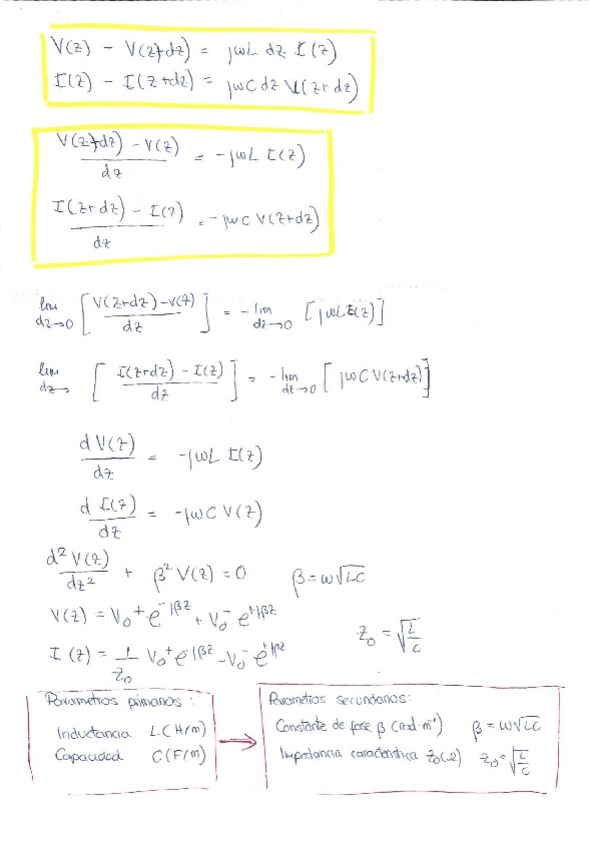 V(z) - V(z+dz) = jωL dz I(z)
I(z) - I(z+dz) = jωC dz V(z+dz)
V(z+dz) - V(z) / dz = -jωL I(z)
I(z+dz) - I(z) / dz = -jωC V(z+dz)
lim dz→0 [V(z+dz)-V(z) / dz] = -lim dz→0 [jωL I(z)]
lim dz→ [I(z+dz) - I(z) / dz] = -lim dz→0 [jωC V(z+dz)]
dV(z) / dz = -jωL I(z)
dI(z) / dz = -jωC V(z)
d²V(z) / dz² + β² V(z) = 0 β = ω√LC
V(z) = V₀⁺ e^-jβz + V₀⁻ e^+jβz
Z₀ = √L/C
I(z) = 1/Z₀ V₀⁺ e^jβz - V₀⁻ e^+jβz
Parametros primarios:
Inductancia L (H/m)
Capacidad C (F/m)
Parametros secundarios:
Constante de fase β (rad·m⁻¹) β = ω√LC
Impedancia caracteristica Z₀ (Ω) Z₀ = √L/C